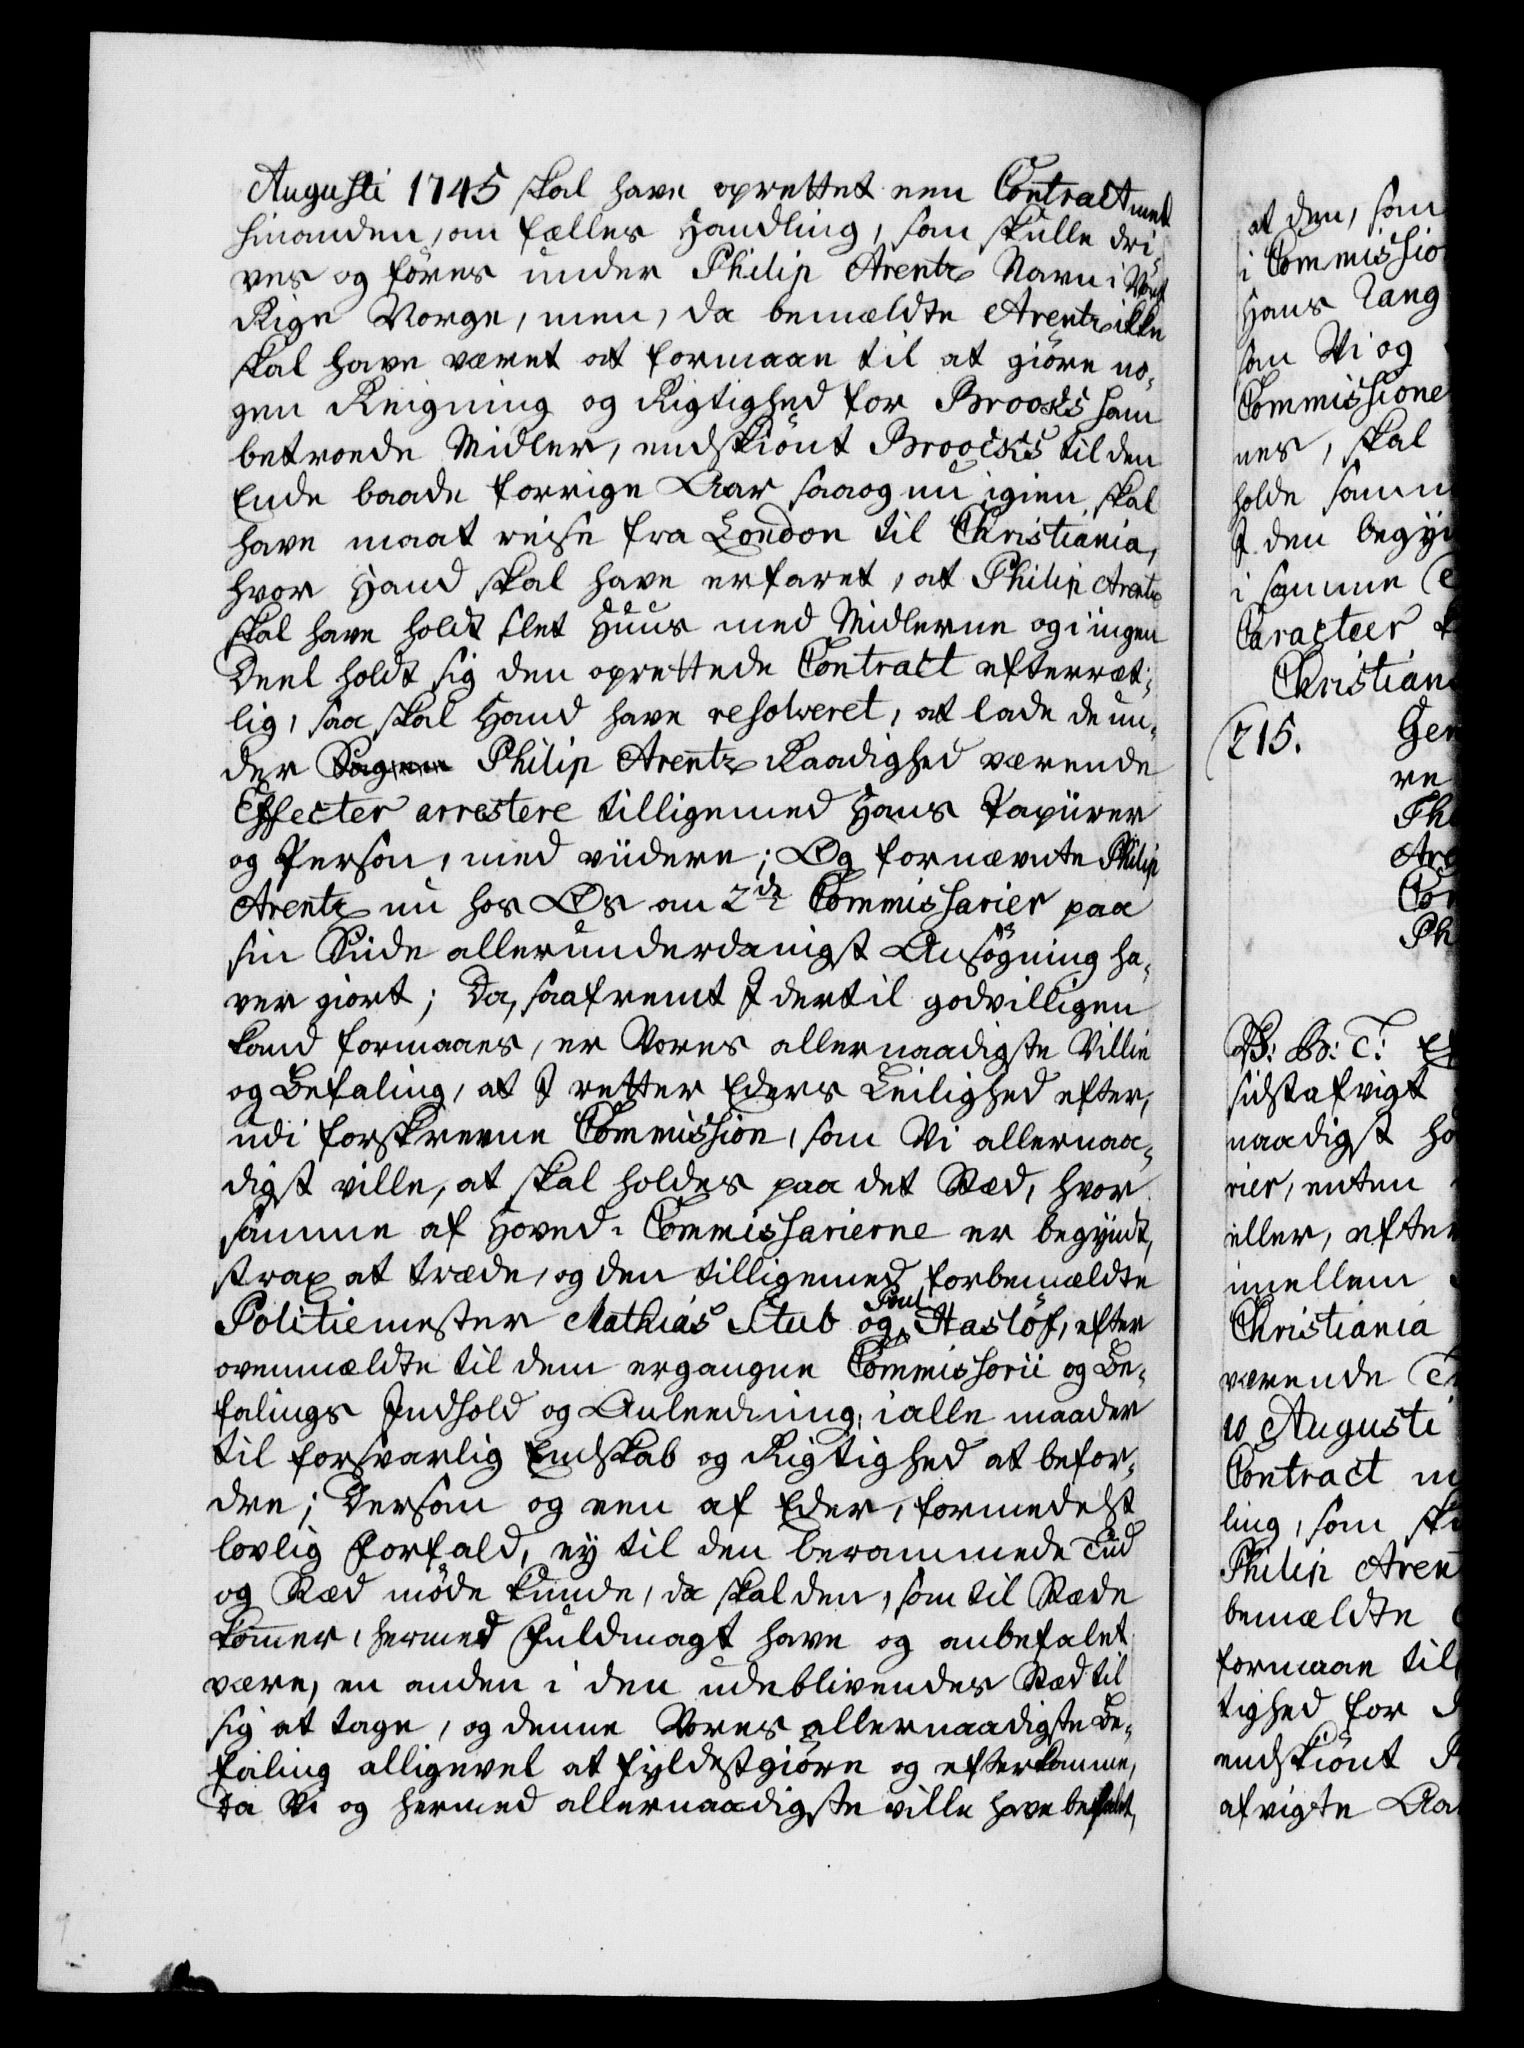 Augusti 1745 skal have oprettet een Contract med
hinanden, om fælles Handling, som skulle dri-
ves og föres under Philip Arentz Navn i Vort
Rige Norge, men, da bemældte Arentz ikke
skal have været at formaae til at giöre no-
gen Reigning og Rigtighed for Broocks ham
betroede Midler, endskiönt Broocks til den
Ende baade forrige Aar saa og nu igien skal
have maat reise fra London til Christiania,
hvor Hand skal have erfaret, at Philip Arentz
skal have holdt slet Huus med Midlerne og i ingen
Deel holdt sig den oprettede Contract efterræt-
lig, saa skal Hand have resolveret, at lade de un-
der Philip Arentz Raadighed værende
Effecter arrestere tilligemed Hans Papiirer
og Person, med viidere; Og fornævnte Philip
Arentz nu hos Os om 2de Commissarier paa
sin Siide allerunderdanigst Ansögning ha-
ver giort; Da, saafremt I dertil godvilligen
kand formaaes, er Vores allernaadigste Villie
og Befaling, at I retter Eders Leilighed efter,
udi forskrevne Commission, som Vi allernaa-
digst ville, at skal holdes paa det Stæd, hvor
samme af Hoved-Commissarierne er begyndt,
strax at træde, og den tilligemed forbemældte
Politiemester Mathias Stub og Poul Hasløf, efter
ovenmældte til dem ergangne Commissorii og Be-
falings Indhold og Anleedning, i alle maader
til forsvarlig Endskab og Rigtighed at befor-
dre; Dersom og een af Eder, formedelst
lovlig Forfald, ey til den berammede Tiid
og Stæd möde kunde, da skal den, som til Stæde
kommer, hermed Fuldmagt have og anbefalet
være, en anden i den udeblivendes Stæd til
sig at tage, og denne Vores allernaadigste Be-
faling alligevel at fyldestgiöre og efterkomme,
Da Vi og hermed allernaadigste ville have befalet,
at den, som
i Commissio
Hans Rang
som Vi og
Commissione
nes, skal
holde samm
I den begyn
i samme
Caracteer
Christian
215. Gen
re
Phi
Are
Con
Ph
sidstafvigt
naadigst ha
rier, enten
eller, efter
imellem
Christiania
værende
10 Augusti
Contract m
ling, som sku
Philip Aren
bemældte
formaae til
tighed for
endskiönt
afvigte Aar